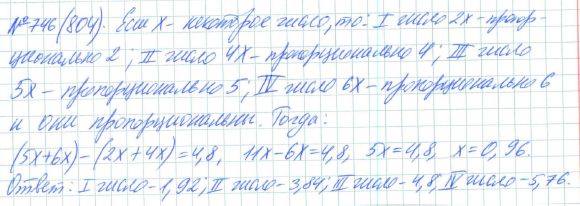 №746(804). Если x - некоторое число, то: I число 2x - пропор-
ционально 2; II число 4x - пропорционально 4; III число
5x - пропорционально 5; IV число 6x - пропорционально 6
и они пропорциональны. Тогда:
(5x+6x)-(2x+4x)=4,8, 11x-6x=4,8, 5x=4,8, x=0,96.
Ответ: I число - 1,92; II число - 3,84; III число - 4,8; IV число - 5,76.